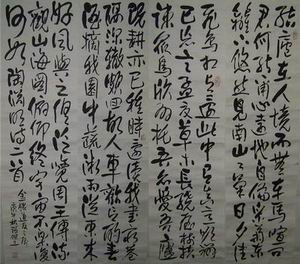 結廬在人境而無車馬喧問
君何能爾心遠地自偏采菊東
籬下悠然見南山山氣日夕佳
飛鳥相與還此中有真意欲辨
已忘言孟夏草木長繞屋樹扶
疏衆鳥欣有托吾亦愛吾廬
既耕亦已種時還讀我書窮巷
隔深轍頗迴故人車歡言酌春
酒摘我園中蔬微雨從東來
好風與之俱泛覽周王傳流
觀山海圖俯仰終宇宙不樂復
何如陶淵明詩二首